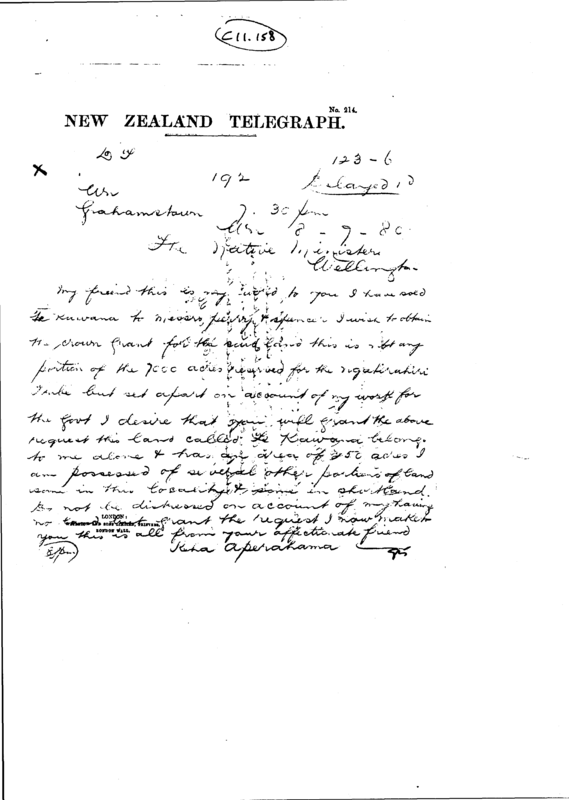 C 11. 158
No. 214.
NEW ZEALAND TELEGRAPH.
123-6
192 Delayed
Grahamstown 7. 30 pm
8 - 9 - 80
The Native Minister
Wellington
My friend this is my word to you I have sold
Te Kawana to Messrs perry & spencer I wish to obtain
the crown grant for the said land this is not any
portion of the 7000 acres reserved for the
Tribe but set apart on account of my work for
the Govt I desire that you will grant the above
request this land called Te Kawana belongs
to me alone & has an area of 350 acres I
am possessed of several other portions of land
some in this locality & some in shortland.
Do not be distressed on account of my having
no to grant the request I now make to
LONDON:
LONDON WALL.
you this is all from your affectionate friend
Aperahama